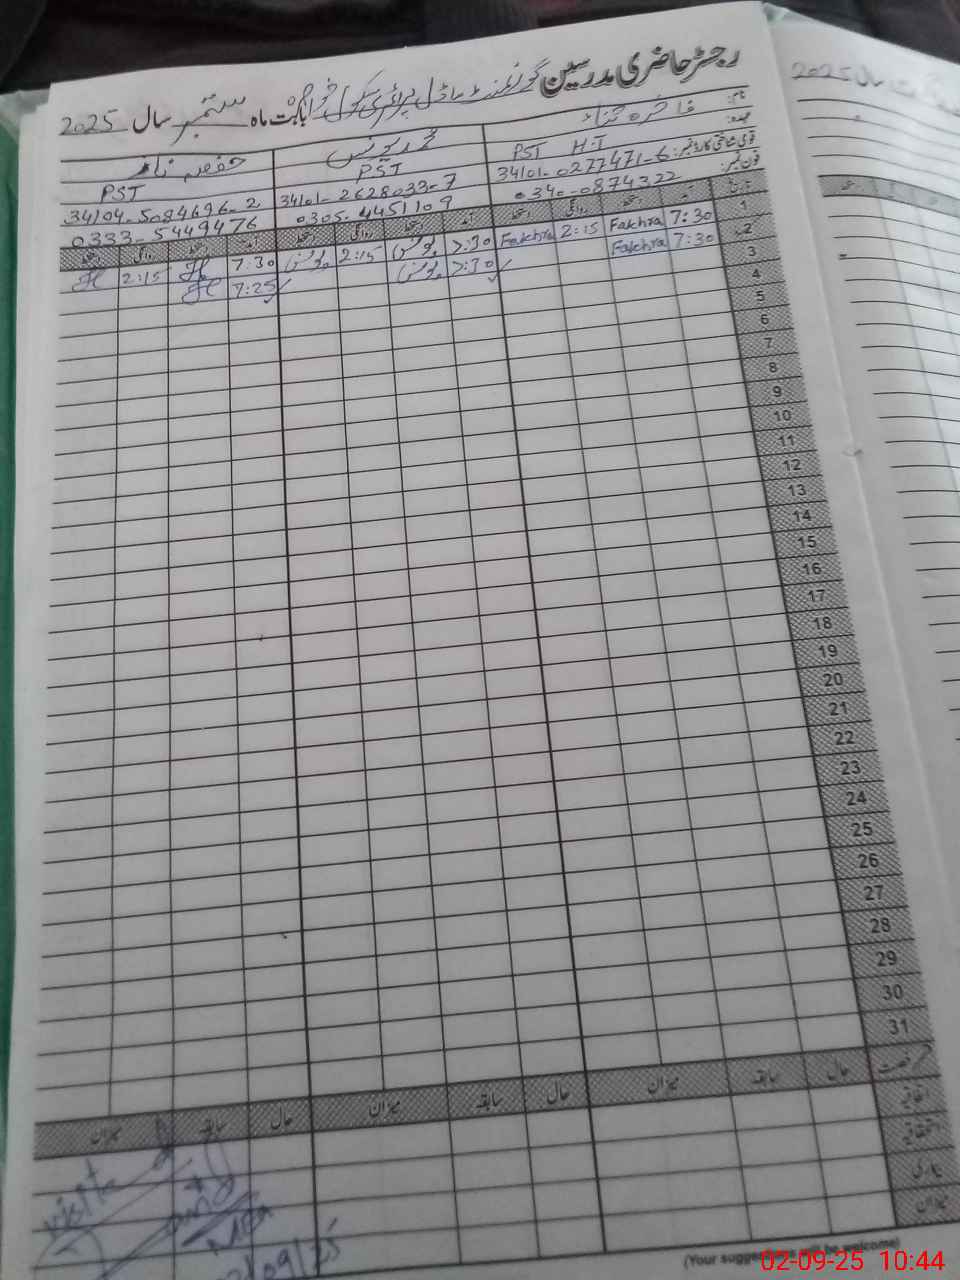 رجسٹر حاضری مدرسین گورنمنٹ ماڈل پرائمری سکول خواص بابت ماہ ستمبر سال 2025
نام: فاخرہ ثناء محمد یونس حفصہ ناز
عہدہ: PST H.T PST PST
قومی شناختی کارڈ نمبر: 34101-0277471-6 34101-2628033-7 34104-5084696-2
فون نمبر: 0340-0874322 0305-4451109 0333-5449476
تاریخ آمد دستخط روانگی دستخط آمد دستخط روانگی دستخط آمد دستخط روانگی دستخط
1 7:30 Fakhra 2:15 Fakhra 7:30 یونس 2:15 یونس 7:30 2:15
2 7:30 Fakhra 7:30 یونس 7:25
3
4
5
6
7
8
9
10
11
12
13
14
15
16
17
18
19
20
21
22
23
24
25
26
27
28
29
30
31
رخصت حال سابقہ میزان حال سابقہ میزان حال سابقہ میزان
اتفاقیہ
استحقاقیہ
بیماری
میزان
visited
and
MEA
/09/25
(Your suggestions will be welcome)
02-09-25 10:44
سال 2025